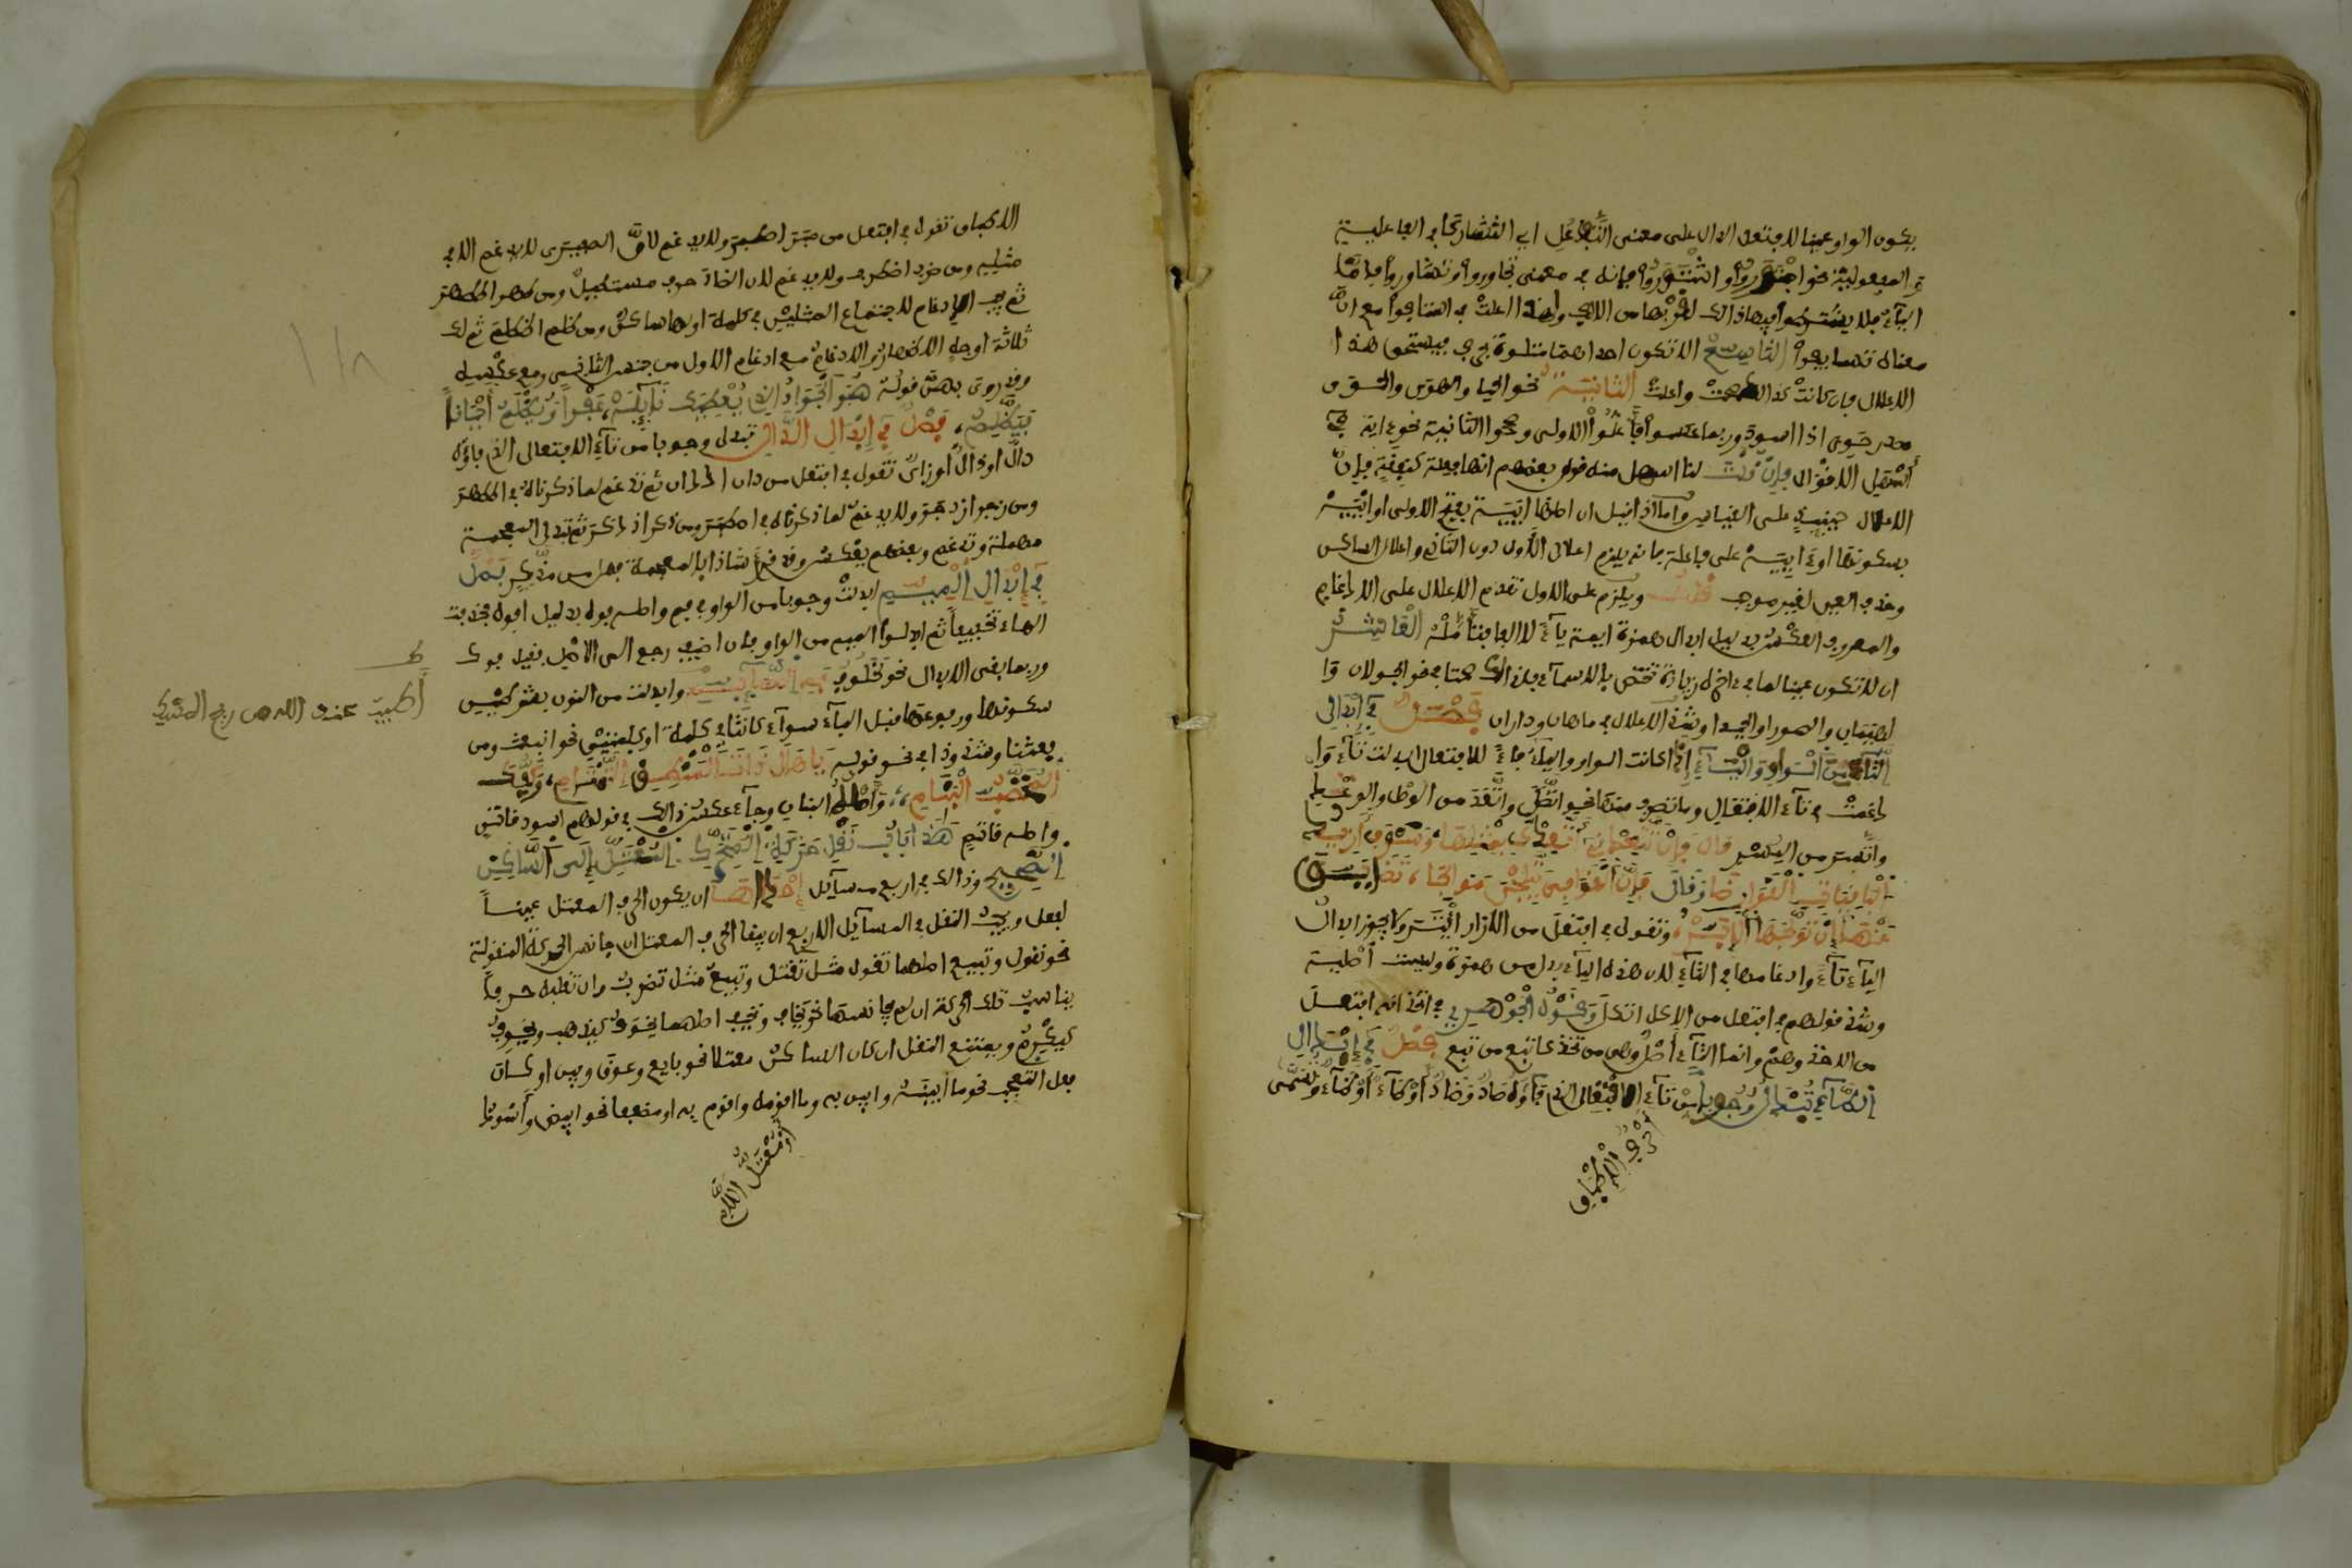 يكون الواو عينا لافتعل الدال على معنى التَّفاعُلِ اي التشارك في الفاعلية
والمفعولية نحو اجْتَوَرُوا واشْتَوَرُوا فإنه في معنى تجاوروا وتشاوروا فامّا
الياء فلا يشترط فيها ذالك لقربها من الالف ولهذا اعلت في استافوا مع انّ
معناه تسايفوا التاسع الا تكون احداهما متلوة بحرف يستحق هذا ا
الاعلال فان كانت كذالك صحت واعلت الثانية نحو الحيا والهوى والحوى
مصدر حَوِي اذا اسود وربما عكسوا فأعلوا الاولى وصححوا الثانية نحو ءاية في
أسهل الاقوال فإن قلت لنا اسهل منه قول بعضهم انها فعلة كنبقة فإنّ
الاعلال حينئذ على القياس وأما اذا قيل ان اصلها أيية بفتح الاولى او أيية
بسكونها او ءايية على فاعلة فإنه يلزم اعلال الأول دون الثاني واعلال الساكن
وحذف العين لغير موجب قلت ويلزم على الاول تقديم الاعلال على الادغام
والمعروف العكس بدليل ابدال همزة ايمة ياء لا الفا فتأمله العاشر
ان لا تكون عينا لما في ءاخره زيادة تختص بالاسماء فلذالك صحتا في نحو الجولان وا
لهيمان والصورا والحيدا وشذ الاعلال في ماهان وداران فصل في ابدال
التاء من الواو والياء إذا كانت الواو والياء فاء للافتعال ابدلت تاء وا
دغمت في تاء الافتعال وما تصرف منها نحو اتصل واتعد من الوصل والوعد
واتسر من اليسر قال فإن تتعدني أتعدك بمثلها، وسوف أزيد
الباقيات القوارصا وقال فإن القوافي يتلجن موالجا، تضايق
عنها أن تولجها الإبر، وتقول في افتعل من الازار ايتزر ولا يجوز ابدال
الياء تاء وادغامها في التاء لان هذه الياء بدل من همزة وليست أصلية
وشذ قولهم في افتعل من الاكل اتكل وقول الجوهري في اتخذ انه افتعل
من الاخذ وهم وانما التاء أصل وهي من تخذ كاتبع من تبع فصل في إبدال
الطاء تبدل وجوبا من تاء الافتعال الذي فاؤه صاد أو ضاد أو طاء أو ظاء وتسمى
أحرف الإطباق
الاطباق تقول في افتعل من صبر اصطبر ولا يدغم لانّ الصفيري لا يدغم الا في
مثله ومن ضرب اضطرب ولا يدغم لان الضاد حرف مستطيل ومن طهر اططهر
ثم يجب الإدغام لاجتماع المثلين في كلمة أولهما ساكن ومن ظلم اظطلم ثم لك
ثلاثة اوجه الاظهار والادغام مع ابدال الاول من جنس الثاني ومع عكسه
وقد روى بهنّ قوله هُوَ الجَوَادُ الذي يعطيك نائله، عفوا ويظلم أحيانا
فيظّلم، فصل في إبدال الدال تبدل وجوبا من تاء الافتعال الذي فاؤه
دال أو ذال أو زاي تقول في افتعل من دان اددان ثم تدغم لما ذكرناه في اططهر
ومن زجر ازدجر ولا يدغم لما ذكرناه في اصطبر ومن ذكر اذدكر ثم تبدل المعجمة
مهملة وتدغم وبعضهم يعكس وقد قرئ شاذا بالمعجمة فهل من مذكر فصل
في إبدال الميم ابدلت وجوبا من الواو في فم واصله فوه بدليل افواه فحذفت
الهاء تخفيفا ثم ابدلوا الميم من الواو فان اضيف رجع الى الاصل فقيل فوك
وربما بقي الابدال نحو لخلوف فم الصائم وابدلت من النون بشرطين
سكونها ووقوعها قبل الباء سواء كانتا في كلمة او كلمتين نحو انبعث ومن
بعثنا وشذوذا في نحو قوله يا هال ذات المنطق التمتام، وكفك
المخضب البنام، وأصله البنان وجاء عكس ذالك في قولهم اسود قاتن
واصله قاتم هذا باب نقل حركة المتحرك المعتل إلى الساكن
الصحيح وذالك في اربع مسائل إحداها ان يكون الحرف المعتل عينا
لفعل ويجب النقل في المسائل الاربع ان يبقا الحرف المعتل ان جانس الحركة المنقولة
نحو تقول وتبيع اصلهما تقول مثل تقتل وتبيع مثل تضرب وان تقلبه حرفا
يناسب تلك الحركة ان لم يجانسها نحو يخاف ويخيف اصلهما يخوف كيذهب ويخوف
كيكرم ويمتنع النقل ان كان الساكن معتلا نحو بايع وعوق وبين او كان
فعل التعجب نحو ما ابينه وابين به وما اقومه واقوم به او مضعفا نحو ابيض وأسود
أو معتل اللام
أطيب عند الله من ريح المسك